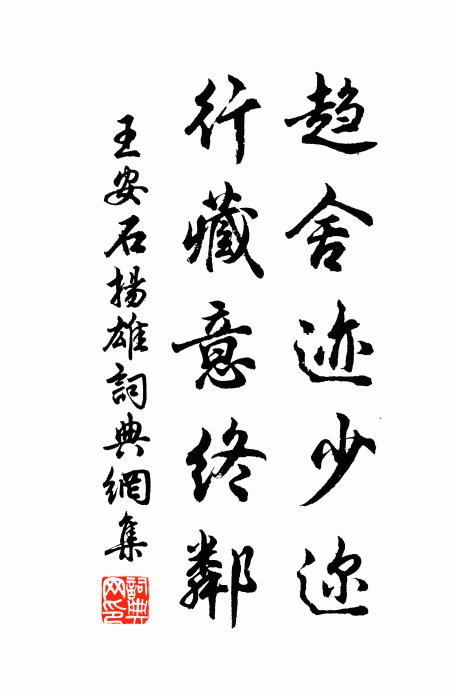 趋舍迹少迩
行藏意终鄰
王安石揚雄詞典網集
詞典
网印